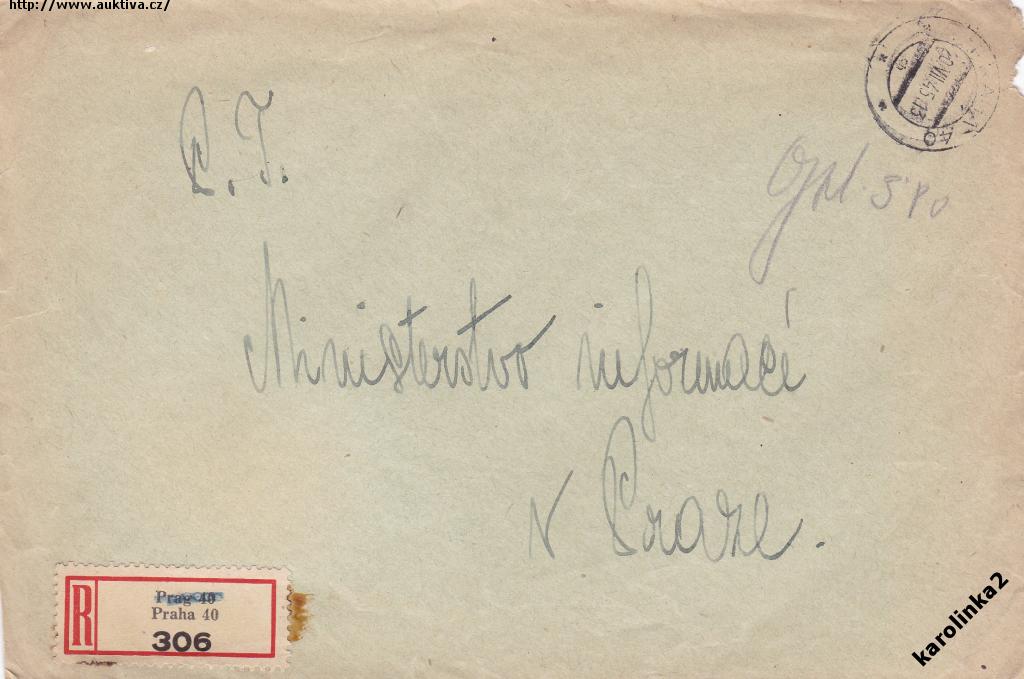 http://www.auktiva.cz/
20.VII.45.13
PRAHA 40
P. T.
Ministerstvo informací
v Praze.
R
Prag 40
Praha 40
306
karolinka2